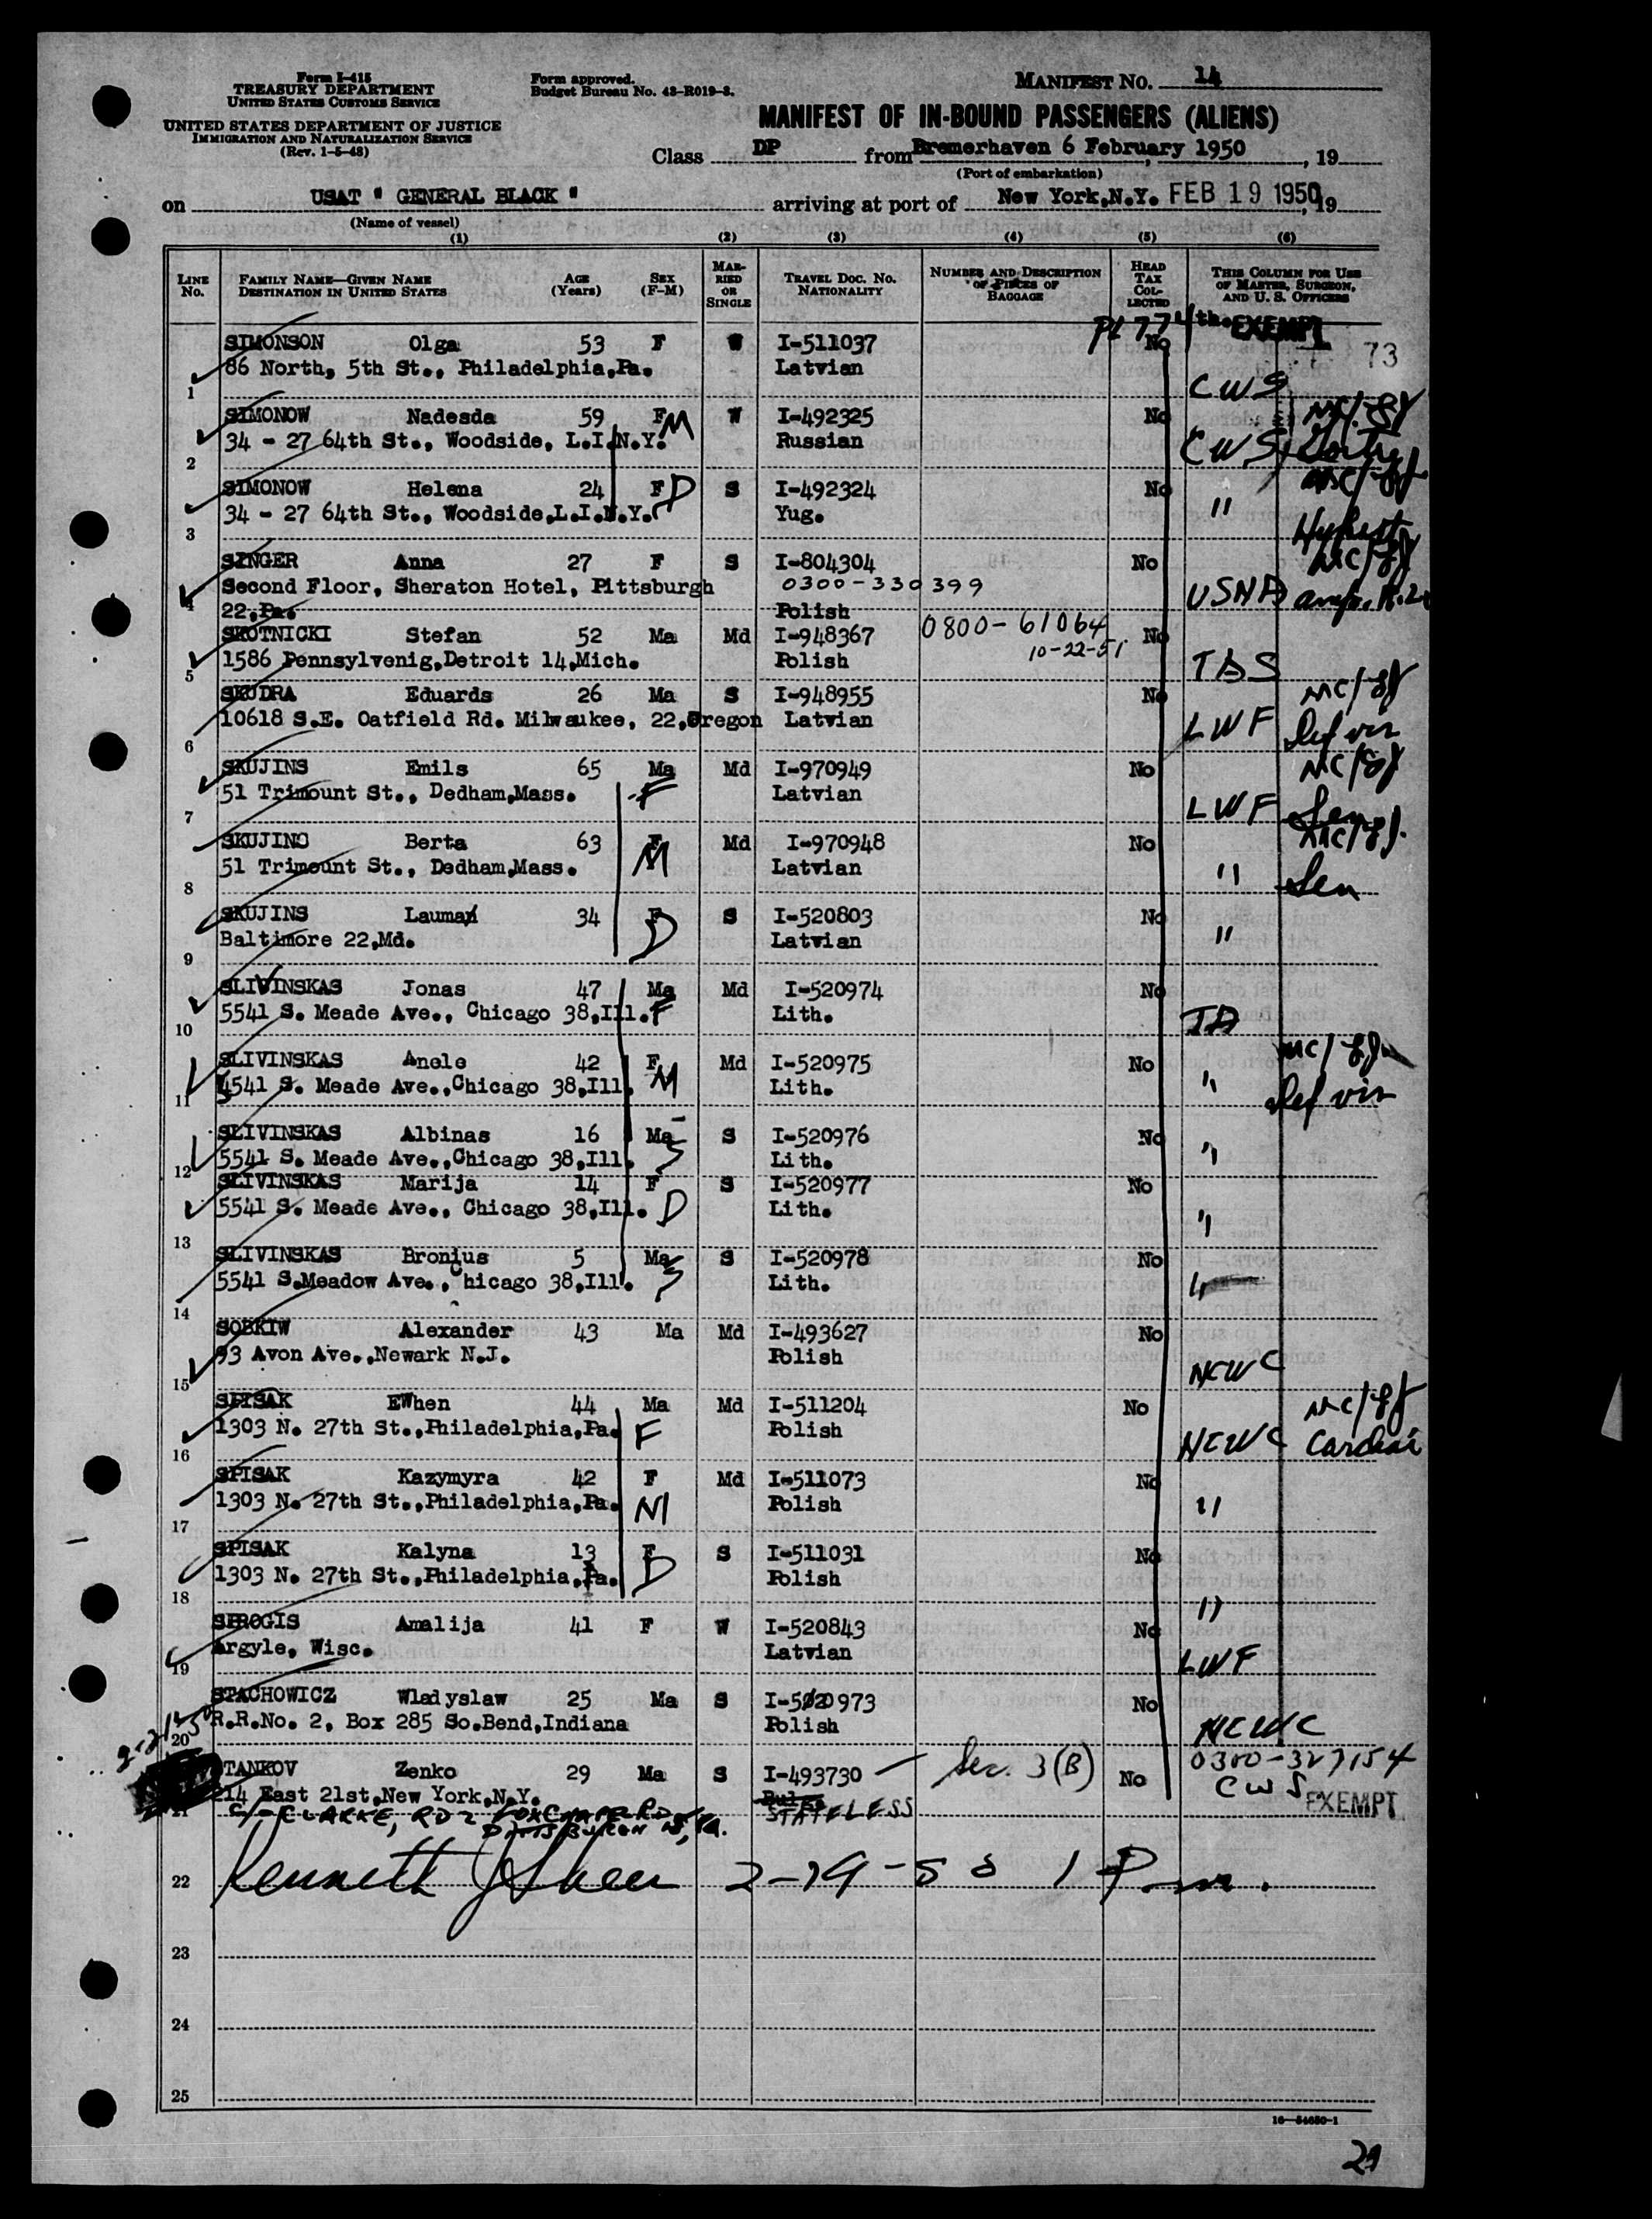 Form I-415
TREASURY DEPARTMENT
UNITED STATES CUSTOMS SERVICE
UNITED STATES DEPARTMENT OF JUSTICE
IMMIGRATION AND NATURALIZATION SERVICE
(Rev. 1-5-48)
Form approved.
Budget Bureau No. 43-R019-3.
MANIFEST NO. 14
MANIFEST OF IN-BOUND PASSENGERS (ALIENS)
Class DP from Bremerhaven 6 February 1950, 19
(Port of embarkation)
on USAT " GENERAL BLACK " arriving at port of New York,N.Y. FEB 19 1950, 19
(Name of vessel)
(1) (2) (3) (4) (5) (6)
LINE No. FAMILY NAME—GIVEN NAME DESTINATION IN UNITED STATES AGE (Years) SEX (F-M) MARRIED OR SINGLE TRAVEL DOC. NO. NATIONALITY NUMBER AND DESCRIPTION OF PIECES OF BAGGAGE HEAD TAX COLLECTED THIS COLUMN FOR USE OF MASTER, SURGEON, AND U. S. OFFICERS
PL 774th. EXEMPT
73
SIMONSON Olga 53 F W I-511037 No
86 North, 5th St., Philadelphia,Pa. Latvian
1 CWS
SIMONOW Nadesda 59 F M W I-492325 No
34 - 27 64th St., Woodside, L.I.N.Y. Russian CWS
2
SIMONOW Helena 24 F D S I-492324 No
34 - 27 64th St., Woodside,L.I.N.Y. Yug. "
3
SINGER Anna 27 F S I-804304 No
Second Floor, Sheraton Hotel, Pittsburgh 0300-330399 USNA
4 22,Pa. Polish
SKOTNICKI Stefan 52 Ma Md I-948367 0800-61064 No
1586 Pennsylvenig,Detroit 14,Mich. Polish 10-22-51
5
SKUDRA Eduards 26 Ma S I-948955 No
10618 S.E. Oatfield Rd. Milwaukee, 22,Oregon Latvian LWF Def vis
6
SKUJINS Emils 65 Ma Md I-970949 No
51 Trimount St., Dedham,Mass. F Latvian LWF Sen
7
SKUJINS Berta 63 F Md I-970948 No
51 Trimount St., Dedham,Mass. M Latvian " Sen
8
SKUJINS Lauman 34 F S I-520803 No
Baltimore 22,Md. D Latvian "
9
SLIVINSKAS Jonas 47 Ma Md I-520974 No
5541 S. Meade Ave., Chicago 38,Ill. F Lith.
10
SLIVINSKAS Anele 42 F Md I-520975 No
5541 S. Meade Ave.,Chicago 38,Ill. M Lith. " Def vis
11
SLIVINSKAS Albinas 16 Ma S I-520976 No
12 5541 S. Meade Ave.,Chicago 38,Ill. S Lith. "
SLIVINSKAS Marija 14 F S I-520977 No
5541 S. Meade Ave., Chicago 38,Ill. D Lith. "
13
SLIVINSKAS Bronius 5 Ma S I-520978 No
5541 S.Meadow Ave., Chicago 38,Ill. S Lith.
14
SOBKIW Alexander 43 Ma Md I-493627 No
93 Avon Ave.,Newark N.J. Polish NCWC
15
SPISAK EWhen 44 Ma Md I-511204 No
1303 N. 27th St.,Philadelphia,Pa. F Polish NCWC Cardiac
16
SPISAK Kazymyra 42 F Md I-511073 No
1303 N. 27th St.,Philadelphia,Pa. M Polish "
17
SPISAK Kalyna 13 F S I-511031 No
1303 N. 27th St.,Philadelphia,Pa. D Polish "
18
SPROGIS Amalija 41 F W I-520843 No
Argyle, Wisc. Latvian LWF
19
STACHOWICZ Wladyslaw 25 Ma S I-520973 No
R.R.No. 2, Box 285 So.Bend,Indiana Polish NCWC
20
TANKOV Zenko 29 Ma S I-493730 Sec. 3(B) No 0300-327154
214 East 21st,New York,N.Y. Bulg. CWS EXEMPT
C/- CLARKE, RD 2 FOX CHAPEL RD PITTSBURGH 15, PA. STATELESS
22 Kenneth 2-19-50 1 Pm.
23
24
25
16—54650-1